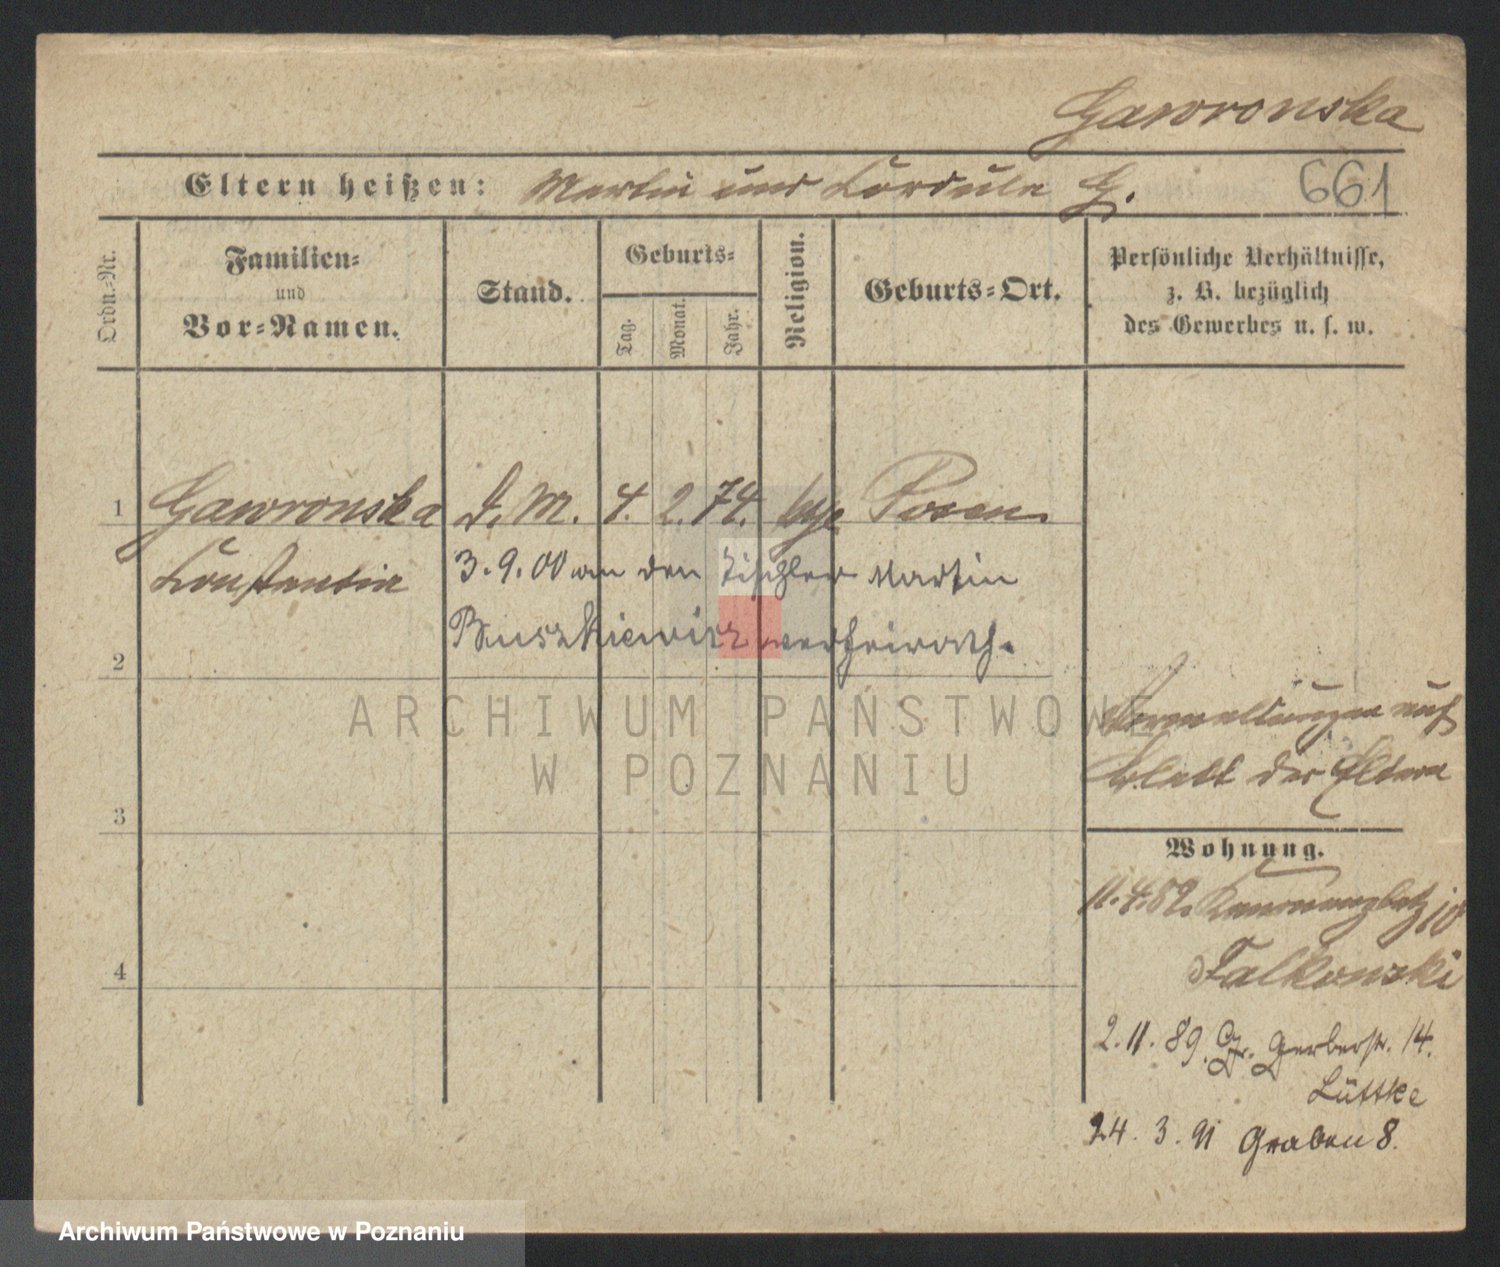 Gawronska
Eltern heißen: Martin und Cordula G. 661
Ordn.-Nr.
Familien-
und
Vor-Namen.
Stand.
Geburts-
Tag.
Monat.
Jahr.
Religion.
Geburts-Ort.
Persönliche Verhältnisse,
z. B. bezüglich
des Gewerbes u. s. w.
1 Gawronska D. M. 4. 2. 74. Posen
Constantia
3. 9. 00 an den Tischler Martin
Buszkiewicz verheirath.
2
ARCHIWUM PAŃSTWOWE
W POZNANIU
auf
Blatt der Eltern
3
Wohnung.
11. 4. 89. Kanonenplatz 10
Falkowski
4
2. 11. 89. Gr. Gerberstr. 14.
Lüttke
24. 3. 91 Graben 8.
Archiwum Państwowe w Poznaniu